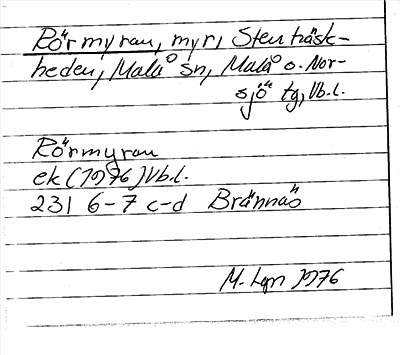 Rörmyran, myr, Stenträsk-
heden, Malå sn, Malå o. Nor-
sjö tg, Vb.l.
Rörmyran
ek (1976) Vb.l.
231 6-7 c-d Brännäs
M. Lgn 1976